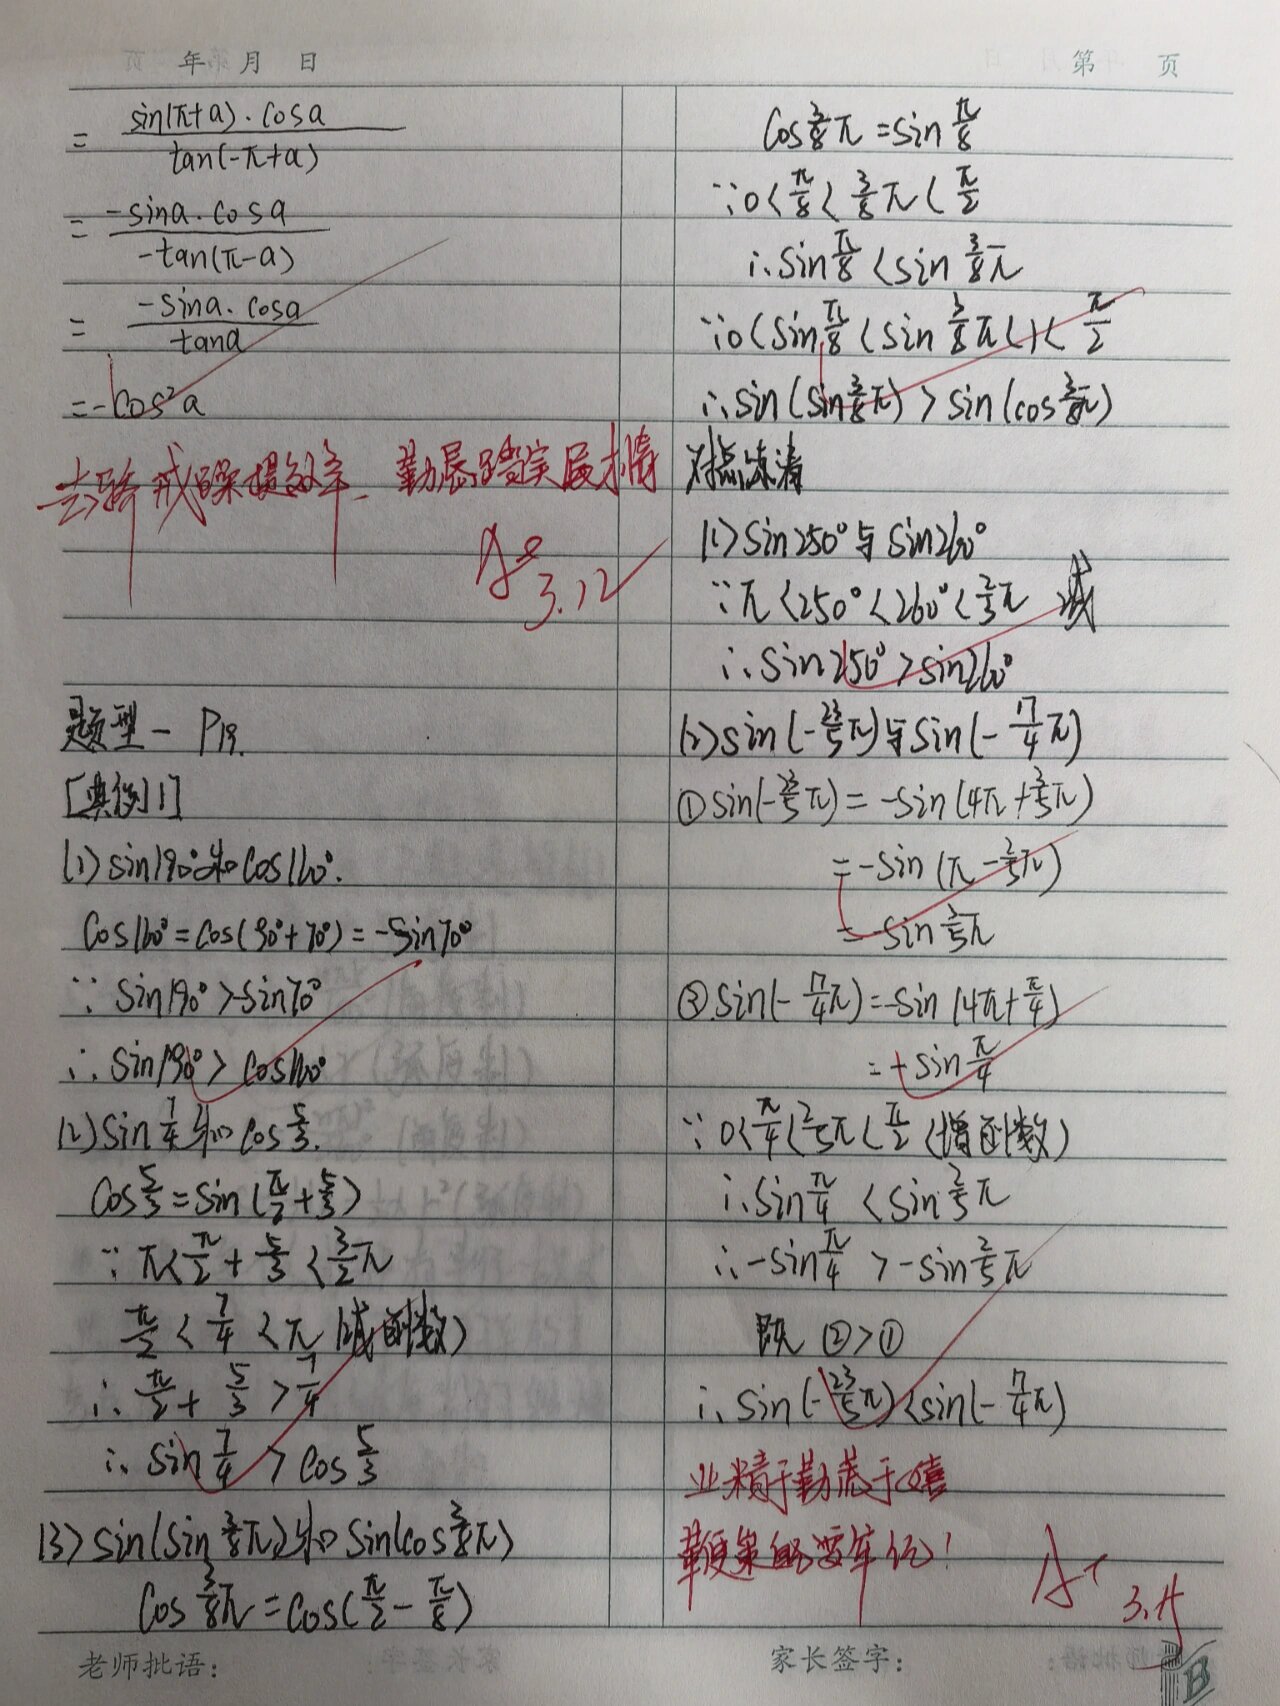 年 月 日
= sin(π+a)·cosa / tan(-π+a)
= -sina·cosa / -tan(π-a)
= -sina·cosa / tana
= -cos²a
去骄戒躁提效率、勤恳踏实展才情
A⁺ 3.12
题型一 P19.
[典例1]
(1) sin190°和cos160°.
cos160°=cos(90°+70°)=-sin70°
∵ sin190°>-sin70°
∴ sin190°>cos160°
(2) sin 7/4 和 cos 5/3.
cos 5/3 = sin(π/2 + 5/3)
∵ π < π/2 + 5/3 < 3/2 π
π/2 < 7/4 < π (减函数)
∴ π/2 + 5/3 > 7/4
∴ sin 7/4 > cos 5/3
(3) sin(sin 3/8 π)和 sin(cos 3/8 π)
cos 3/8 π = cos(π/2 - π/8)
老师批语:
第 页
cos 3/8 π = sin π/8
∵ 0 < π/8 < 3/8 π < π/2
∴ sin π/8 < sin 3/8 π
∵ 0 < sin π/8 < sin 3/8 π < 1 < π/2
∴ sin(sin 3/8 π) > sin(cos 3/8 π)
对点练清
(1) sin250°与sin260°
∵ π<250°<260°< 2/3 π 减
∴ sin250°>sin260°
(2) sin(- 23/5 π)与sin(- 17/4 π)
① sin(- 23/5 π) = -sin(4π + 3/5 π)
= -sin(π - 2/5 π)
= -sin 2/5 π
② sin(- 17/4 π) = -sin(4π + π/4)
= -sin π/4
∵ 0 < π/4 < 2/5 π < π/2 (增函数)
∴ sin π/4 < sin 2/5 π
∴ -sin π/4 > -sin 2/5 π
既 ②>①
∴ sin(- 23/5 π) < sin(- 17/4 π)
业精于勤荒于嬉
鞭策的要牢记!
A⁺ 3.15
家长签字:
B